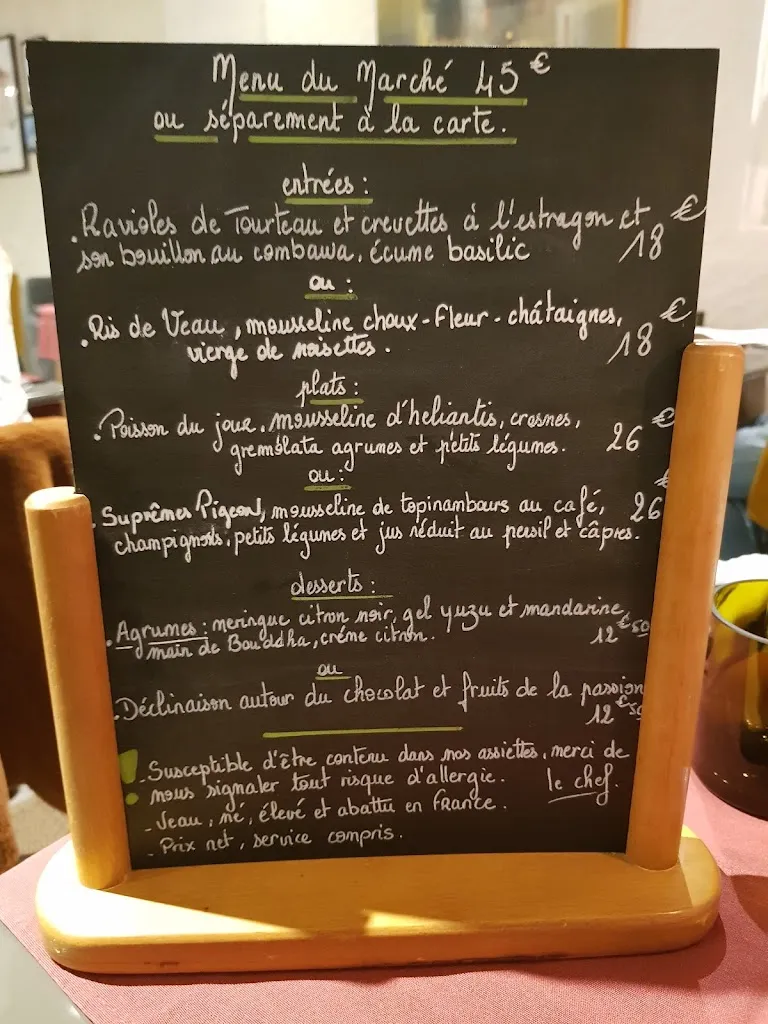 Menu du Marché 45 €
ou séparement à la carte.
entrées :
. Ravioles de Tourteau et crevettes à l'estragon et
son bouillon au combawa, écume basilic 18 €
ou :
. Ris de Veau, mousseline choux-fleur-châtaignes,
vierge de noisettes. 18 €
plats :
. Poisson du jour, mousseline d'heliantis, crosnes,
gremolata agrumes et petits légumes. 26 €
ou :
. Suprêmes Pigeon, mousseline de topinambours au café, 26 €
champignons, petits légumes et jus réduit au persil et câpres.
desserts :
. Agrumes : meringue citron noir, gel yuzu et mandarine,
main de Bouddha, créme citron. 12 € 50
ou
. Déclinaison autour du chocolat et fruits de la passion
12 € 50
! - Susceptible d'être contenu dans nos assiettes, merci de
nous signaler tout risque d'allergie. le chef.
- Veau, né, élevé et abattu en France.
- Prix net, service compris.